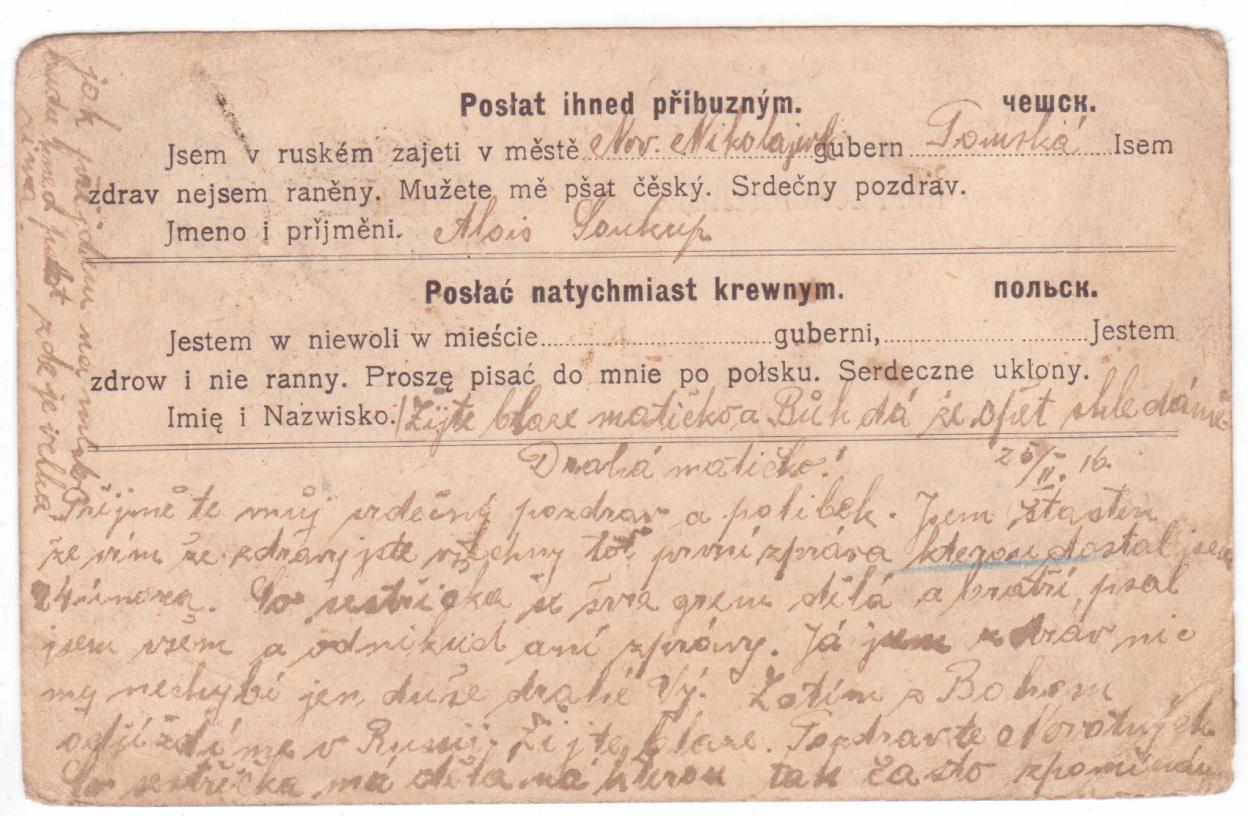 Posłat ihned přibuzným. чешск.
Jsem v ruském zajeti v městě Nov. Nikolajevsk gubern Tomská Isem
zdrav nejsem raněny. Mužete mě pšat čěský. Srdečny pozdrav.
Jmeno i přijměni. Alois Soukup
Posłać natychmiast krewnym. польск.
Jestem w niewoli w mieście guberni, Jestem
zdrow i nie ranny. Proszę pisać do mnie po polsku. Serdeczne uklony.
Imię i Nazwisko. Žijte blaze matičko a Bůh dá že opět shledáme
Drahá matičko! 25/II. 16.
Přijměte můj srdečný pozdrav a polibek. Jsem štasten
že vím že zdrávi jste všichny toť první zpráva kterou dostal jsem
24 února. Co sestřička se švagrem dělá a bratří, psal
jsem všem a odnikud ani zprávy. Já jsem zdráv nic
my nechybí jen, duše drahé Vý. Zatím s Bohem
odjíždíme v Rusii. Žijte blaze. Pozdravte Novotných
Co sestřička má dělá na kterou tak často zpomínám
jak přijdem na místo
budu hned zde je velká
zima